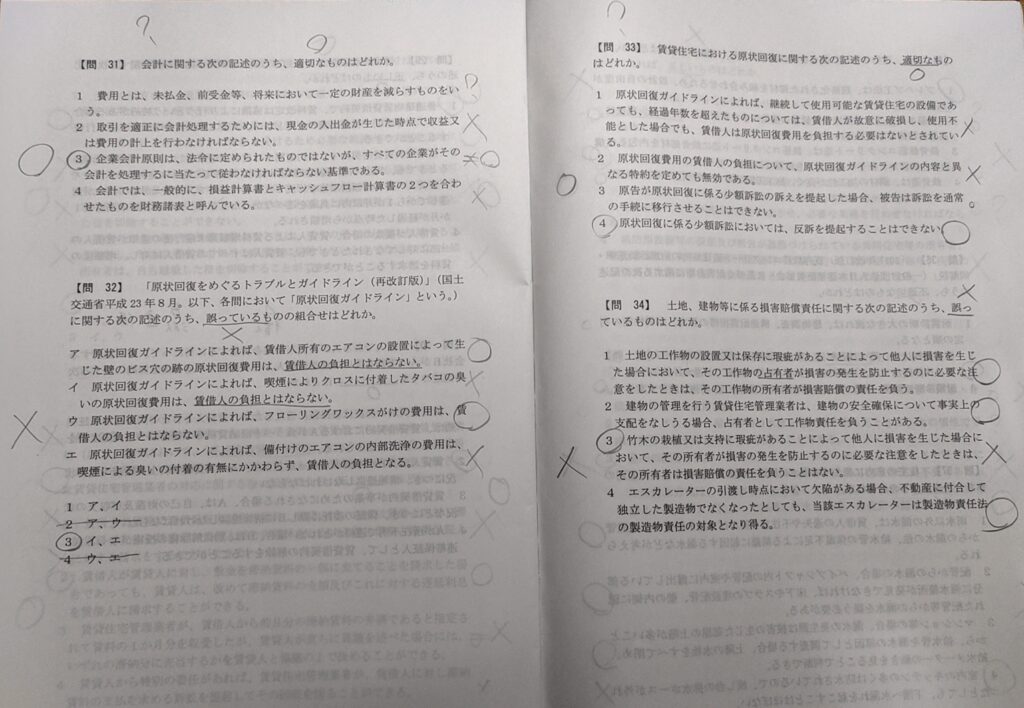 【問 31】 会計に関する次の記述のうち、適切なものはどれか。
1 費用とは、未払金、前受金等、将来において一定の財産を減らすものをい
う。
2 取引を適正に会計処理するためには、現金の入出金が生じた時点で収益又
は費用の計上を行わなければならない。
3 企業会計原則は、法令に定められたものではないが、すべての企業がその
会計を処理するに当たって従わなければならない基準である。
4 会計では、一般的に、損益計算書とキャッシュフロー計算書の2つを合わ
せたものを財務諸表と呼んでいる。
【問 32】 「原状回復をめぐるトラブルとガイドライン(再改訂版)」(国土
交通省平成23年8月。以下、各問において「原状回復ガイドライン」という。)
に関する次の記述のうち、誤っているものの組合せはどれか。
ア 原状回復ガイドラインによれば、賃借人所有のエアコンの設置によって生
じた壁のビス穴の跡の原状回復費用は、賃借人の負担とはならない。
イ 原状回復ガイドラインによれば、喫煙によりクロスに付着したタバコの臭
いの原状回復費用は、賃借人の負担とはならない。
ウ 原状回復ガイドラインによれば、フローリングワックスがけの費用は、賃
借人の負担とはならない。
エ 原状回復ガイドラインによれば、備付けのエアコンの内部洗浄の費用は、
喫煙による臭いの付着の有無にかかわらず、賃借人の負担となる。
1 ア、イ
2 ア、ウ
3 イ、エ
4 ウ、エ
【問 33】 賃貸住宅における原状回復に関する次の記述のうち、適切なもの
はどれか。
1 原状回復ガイドラインによれば、継続して使用可能な賃貸住宅の設備であ
っても、経過年数を超えたものについては、賃借人が故意に破損し、使用不
能とした場合でも、賃借人は原状回復費用を負担する必要はないとされてい
る。
2 原状回復費用の賃借人の負担について、原状回復ガイドラインの内容と異
なる特約を定めても無効である。
3 原告が原状回復に係る少額訴訟の訴えを提起した場合、被告は訴訟を通常
の手続に移行させることはできない。
4 原状回復に係る少額訴訟においては、反訴を提起することはできない。
【問 34】 土地、建物等に係る損害賠償責任に関する次の記述のうち、誤っ
ているものはどれか。
1 土地の工作物の設置又は保存に瑕疵があることによって他人に損害を生じ
た場合において、その工作物の占有者が損害の発生を防止するのに必要な注
意をしたときは、その工作物の所有者が損害賠償の責任を負う。
2 建物の管理を行う賃貸住宅管理業者は、建物の安全確保について事実上の
支配をなしうる場合、占有者として工作物責任を負うことがある。
3 竹木の栽植又は支持に瑕疵があることによって他人に損害を生じた場合に
おいて、その所有者が損害の発生を防止するのに必要な注意をしたときは、
その所有者は損害賠償の責任を負うことはない。
4 エスカレーターの引渡し時点において欠陥がある場合、不動産に付合して
独立した製造物でなくなったとしても、当該エスカレーターは製造物責任法
の製造物責任の対象となり得る。